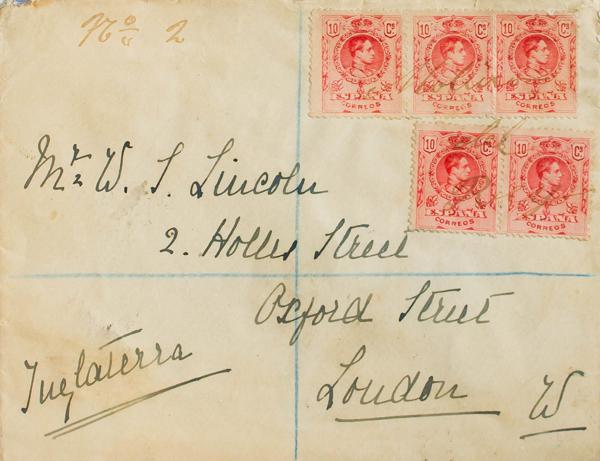 No 2
10 Cs 10 Cs 10 Cs
ESPAÑA ESPAÑA ESPAÑA
CORREOS CORREOS CORREOS
10 Cs 10 Cs
ESPAÑA ESPAÑA
CORREOS CORREOS
Mr W. S. Lincoln
2. Holles Street
Oxford Street
Inglaterra
London W